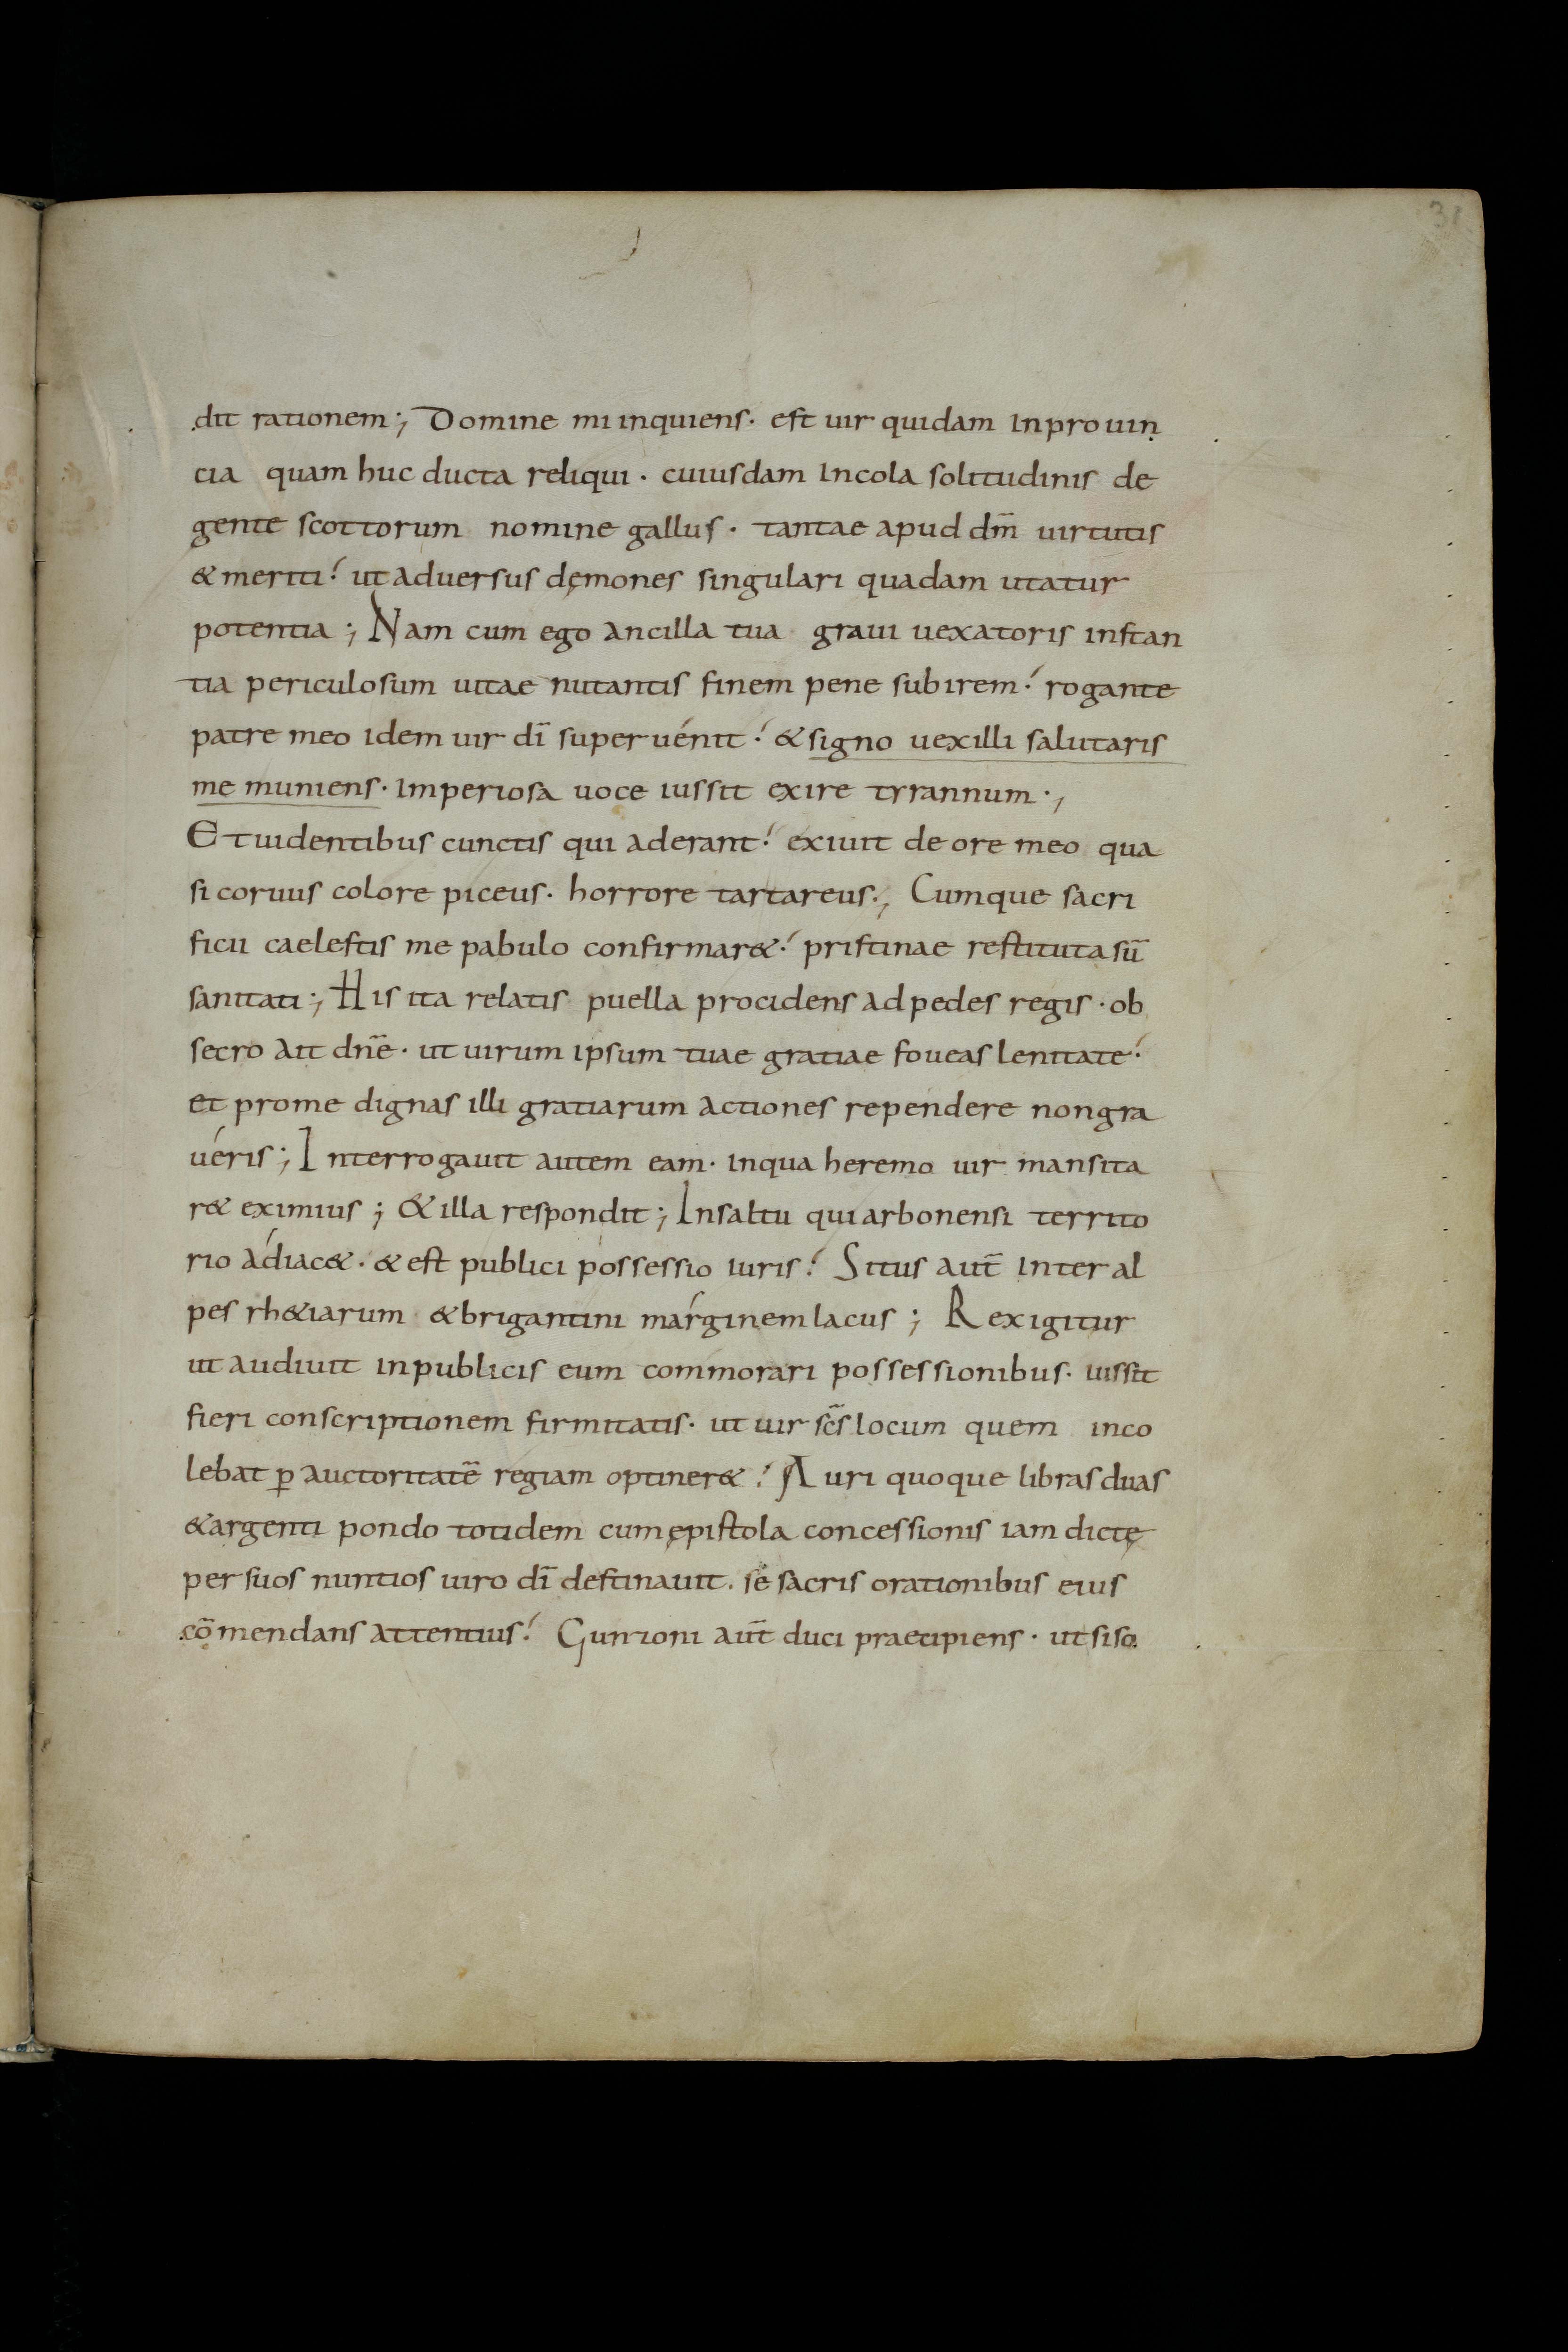 31
dit rationem; Domine mi inquiens· est uir quidam inprouin
cia quam huc ducta reliqui· cuiusdam incola solitudinis de
gente scottorum nomine gallus· tantae apud dm̄ uirtutis
& meriti· ut aduersus dęmones singulari quadam utatur
potentia; Nam cum ego ancilla tua graui uexatoris instan
tia periculosum uitae nutantis finem pene subirem· rogante
patre meo idem uir dī superuénit· & signo uexilli salutaris
me muniens· imperiosa uoce iussit exire tyrannum·,
Et uidentibus cunctis qui aderant· exiuit de ore meo qua
si coruus colore piceus· horrore tartareus·, Cumque sacri
ficii caelestis me pabulo confirmar&· pristinae restituta sū
sanitati; His ita relatis puella procidens ad pedes regis· ob
secro ait dn̄e· ut uirum ipsum tuae gratiae foueas lenitate·
et prome dignas illi gratiarum actiones rependere nongra
uéris; Interrogauit autem eam· inqua heremo uir mansita
r& eximius; & illa respondit; Insaltu qui arbonensi territo
rio ádiac&· & est publici possessio iuris· Situs aut̄ inter al
pes rh&iarum & brigantini márginem lacus; Rex igitur
ut audiuit inpublicis eum commorari possessionibus· iussit
fieri conscriptionem firmitatis· ut uir sc̄s locum quem inco
lebat ꝑ auctoritatē regiam optiner&· Auri quoque libras duas
& argenti pondo totidem cum epistola concessionis iam dictę
per suos nuntios uiro dī destinauit· sé sacris orationibus eius
cōmendans attentius· Gunzoni aut̄ duci praecipiens· ut si so